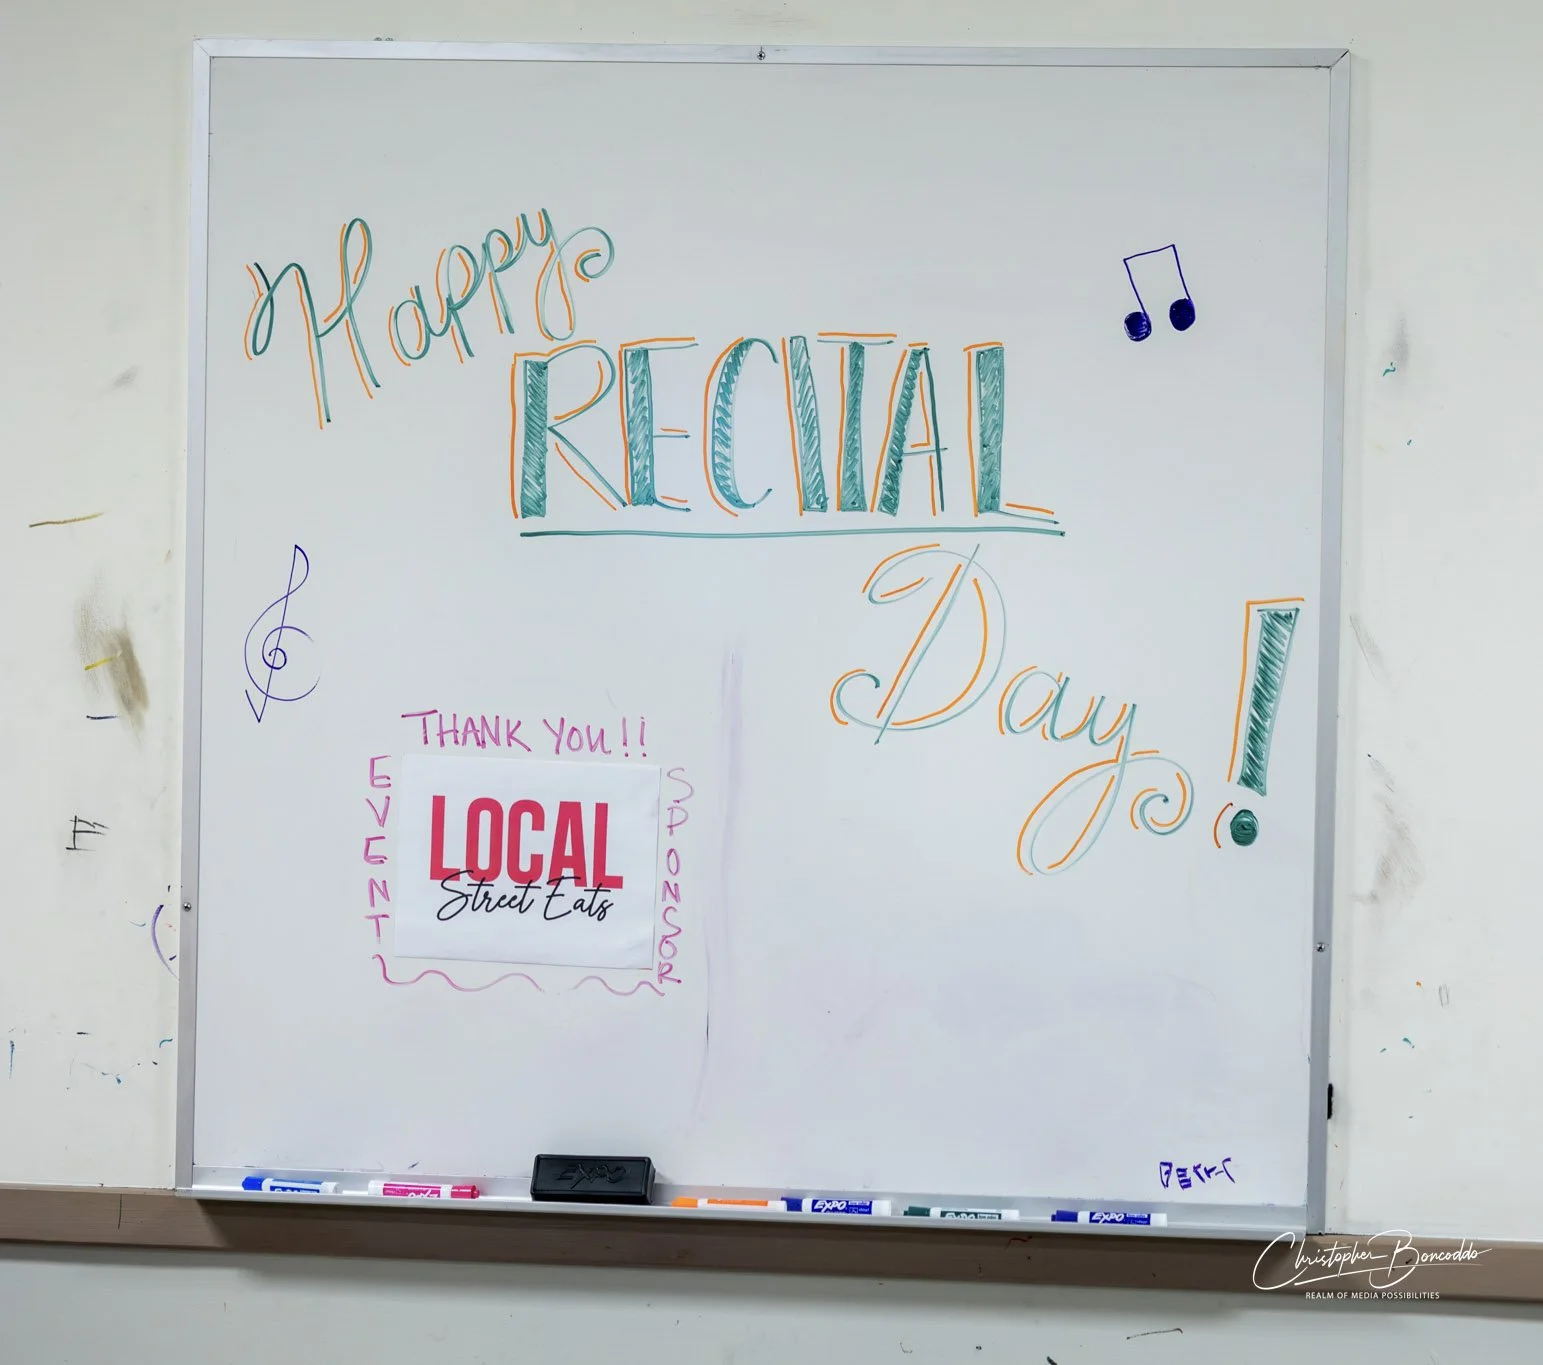 Happy
RECITAL
Day!
THANK YOU!!
EVENT
SPONSOR
LOCAL
Street Eats
EXPO
EXPO
EXPO
EXPO
Christopher Boncoddo
REALM OF MEDIA POSSIBILITIES